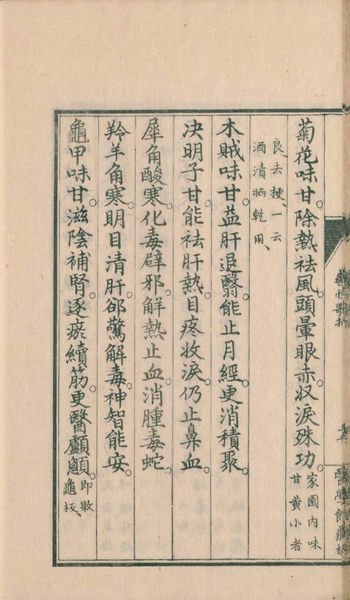 菊花味甘。除熱祛風。頭暈眼赤。収淚殊功。家園内味甘黄小者
良、去梗、一云酒漬晒乾用、
木賊味甘。益肝退翳。能止月經。更消積聚。
决明子甘。能祛肝熱。目疼收淚。仍止鼻血。
犀角酸寒。化毒辟邪。解熱止血。消腫毒蛇。
羚羊角寒。明目清肝。郤驚解毒。神智能安。
龜甲味甘。滋陰補腎。逐瘀續筋。更醫顱顖。即敗龜板、